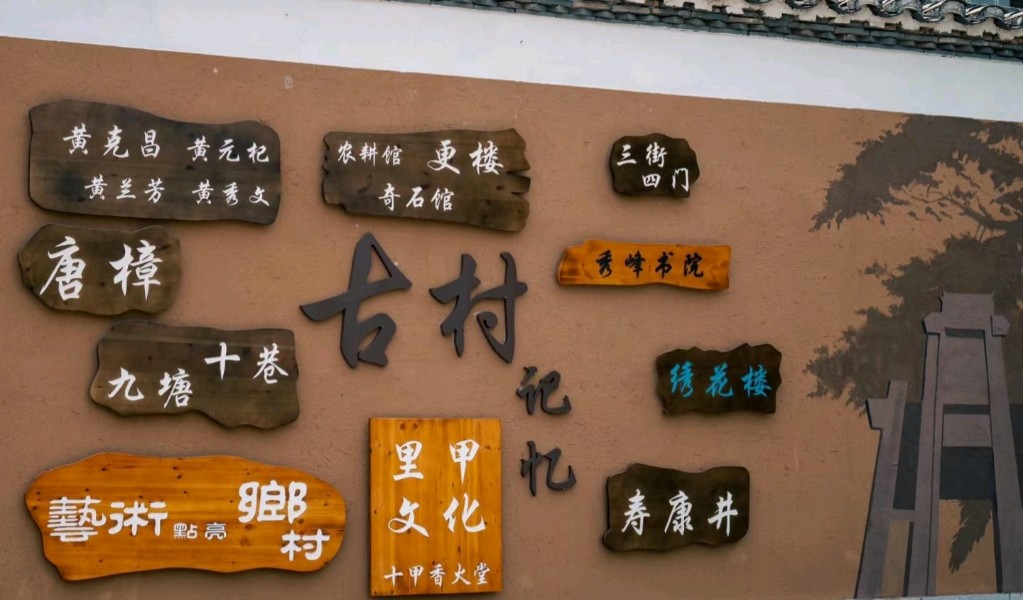 黄克昌 黄元杞
黄兰芳 黄秀文
农耕馆 更楼
奇石馆
三街
四门
唐樟
古村
记忆
秀峰书院
九塘十巷
绣花楼
藝術點亮鄉村
里甲
文化
十甲香火堂
寿康井